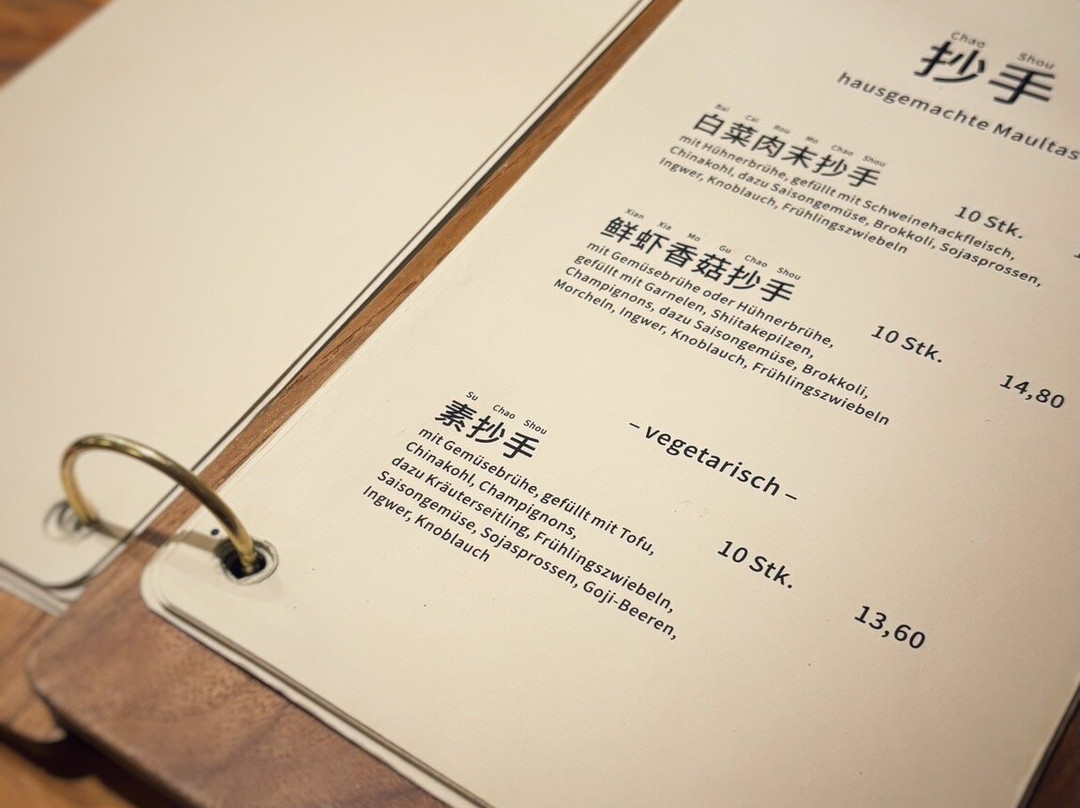 Chao Shou
抄手
hausgemachte
Bai Cai Rou Mo Chao Shou
白菜肉末抄手
mit Hühnerbrühe, gefüllt mit Schweinehackfleisch,
Chinakohl, dazu Saisongemüse, Brokkoli, Sojasprossen,
Ingwer, Knoblauch, Frühlingszwiebeln
10 Stk.
Xian Xia Mo Gu Chao Shou
鲜虾香菇抄手
mit Gemüsebrühe oder Hühnerbrühe,
gefüllt mit Garnelen, Shiitakepilzen,
Champignons, dazu Saisongemüse, Brokkoli,
Morcheln, Ingwer, Knoblauch, Frühlingszwiebeln
10 Stk.
14,80
– vegetarisch –
Su Chao Shou
素抄手
mit Gemüsebrühe, gefüllt mit Tofu,
Chinakohl, Champignons,
dazu Kräuterseitling, Frühlingszwiebeln,
Saisongemüse, Sojasprossen, Goji-Beeren,
Ingwer, Knoblauch
10 Stk.
13,60